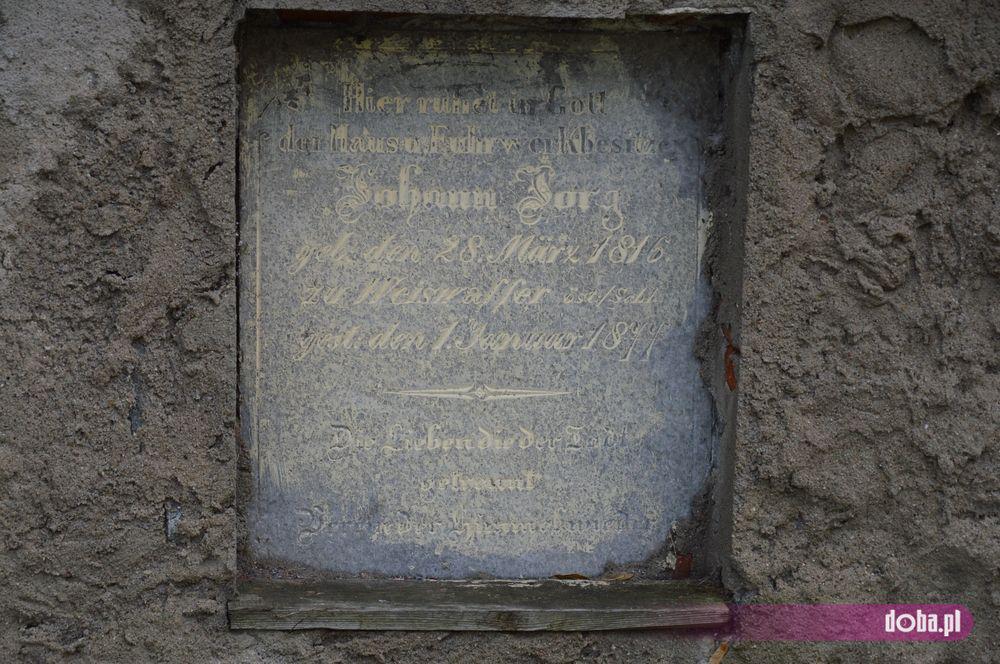 Hier ruhet in Gott
der Haus u. Fuhrwerkbesitzer
Johann Jorg
geb. den 28. März 1816
zu Weiswasser öst./Schl.
gest. den 1. Januar 1877
Die Lieben die der Tod
getrennt
der
doba.pl